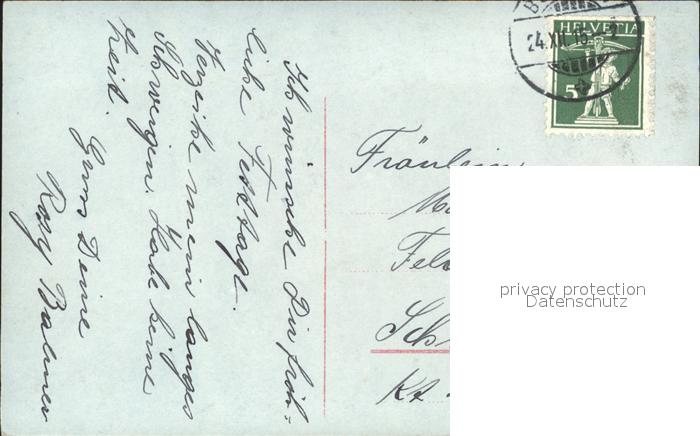 Ich wünsche Dir fröh-
liche Festtage.
Verzeihe mein langes
Schweigen. Habe keine
Zeit.
Gruss Deine
Rosy Balmer
24.XII.15
HELVETIA
5
Fräulein
Kt.
privacy protection
Datenschutz